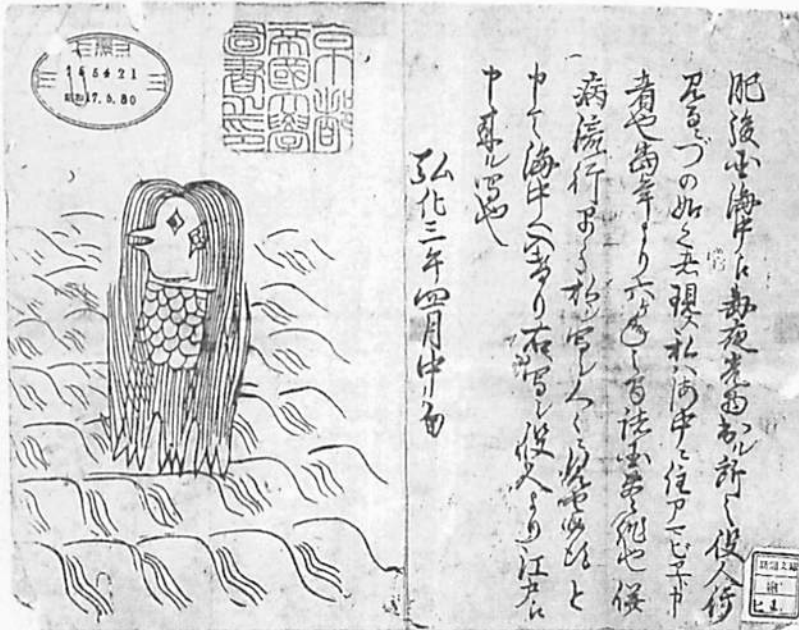 肥後国海中江毎夜光物出ル所之役人行
見るニづの如く者現ス私ハ海中ニ住アマビヱト申
者也當年より六ヶ年之間諸国豊作也併
病流行早々私シ写シ人々ニ見セ候得と
申て海中へ入けり右写シ役人より江戸江
申来ル写也
弘化三年四月中旬
京都
帝國大學
圖書之印
17.5.30